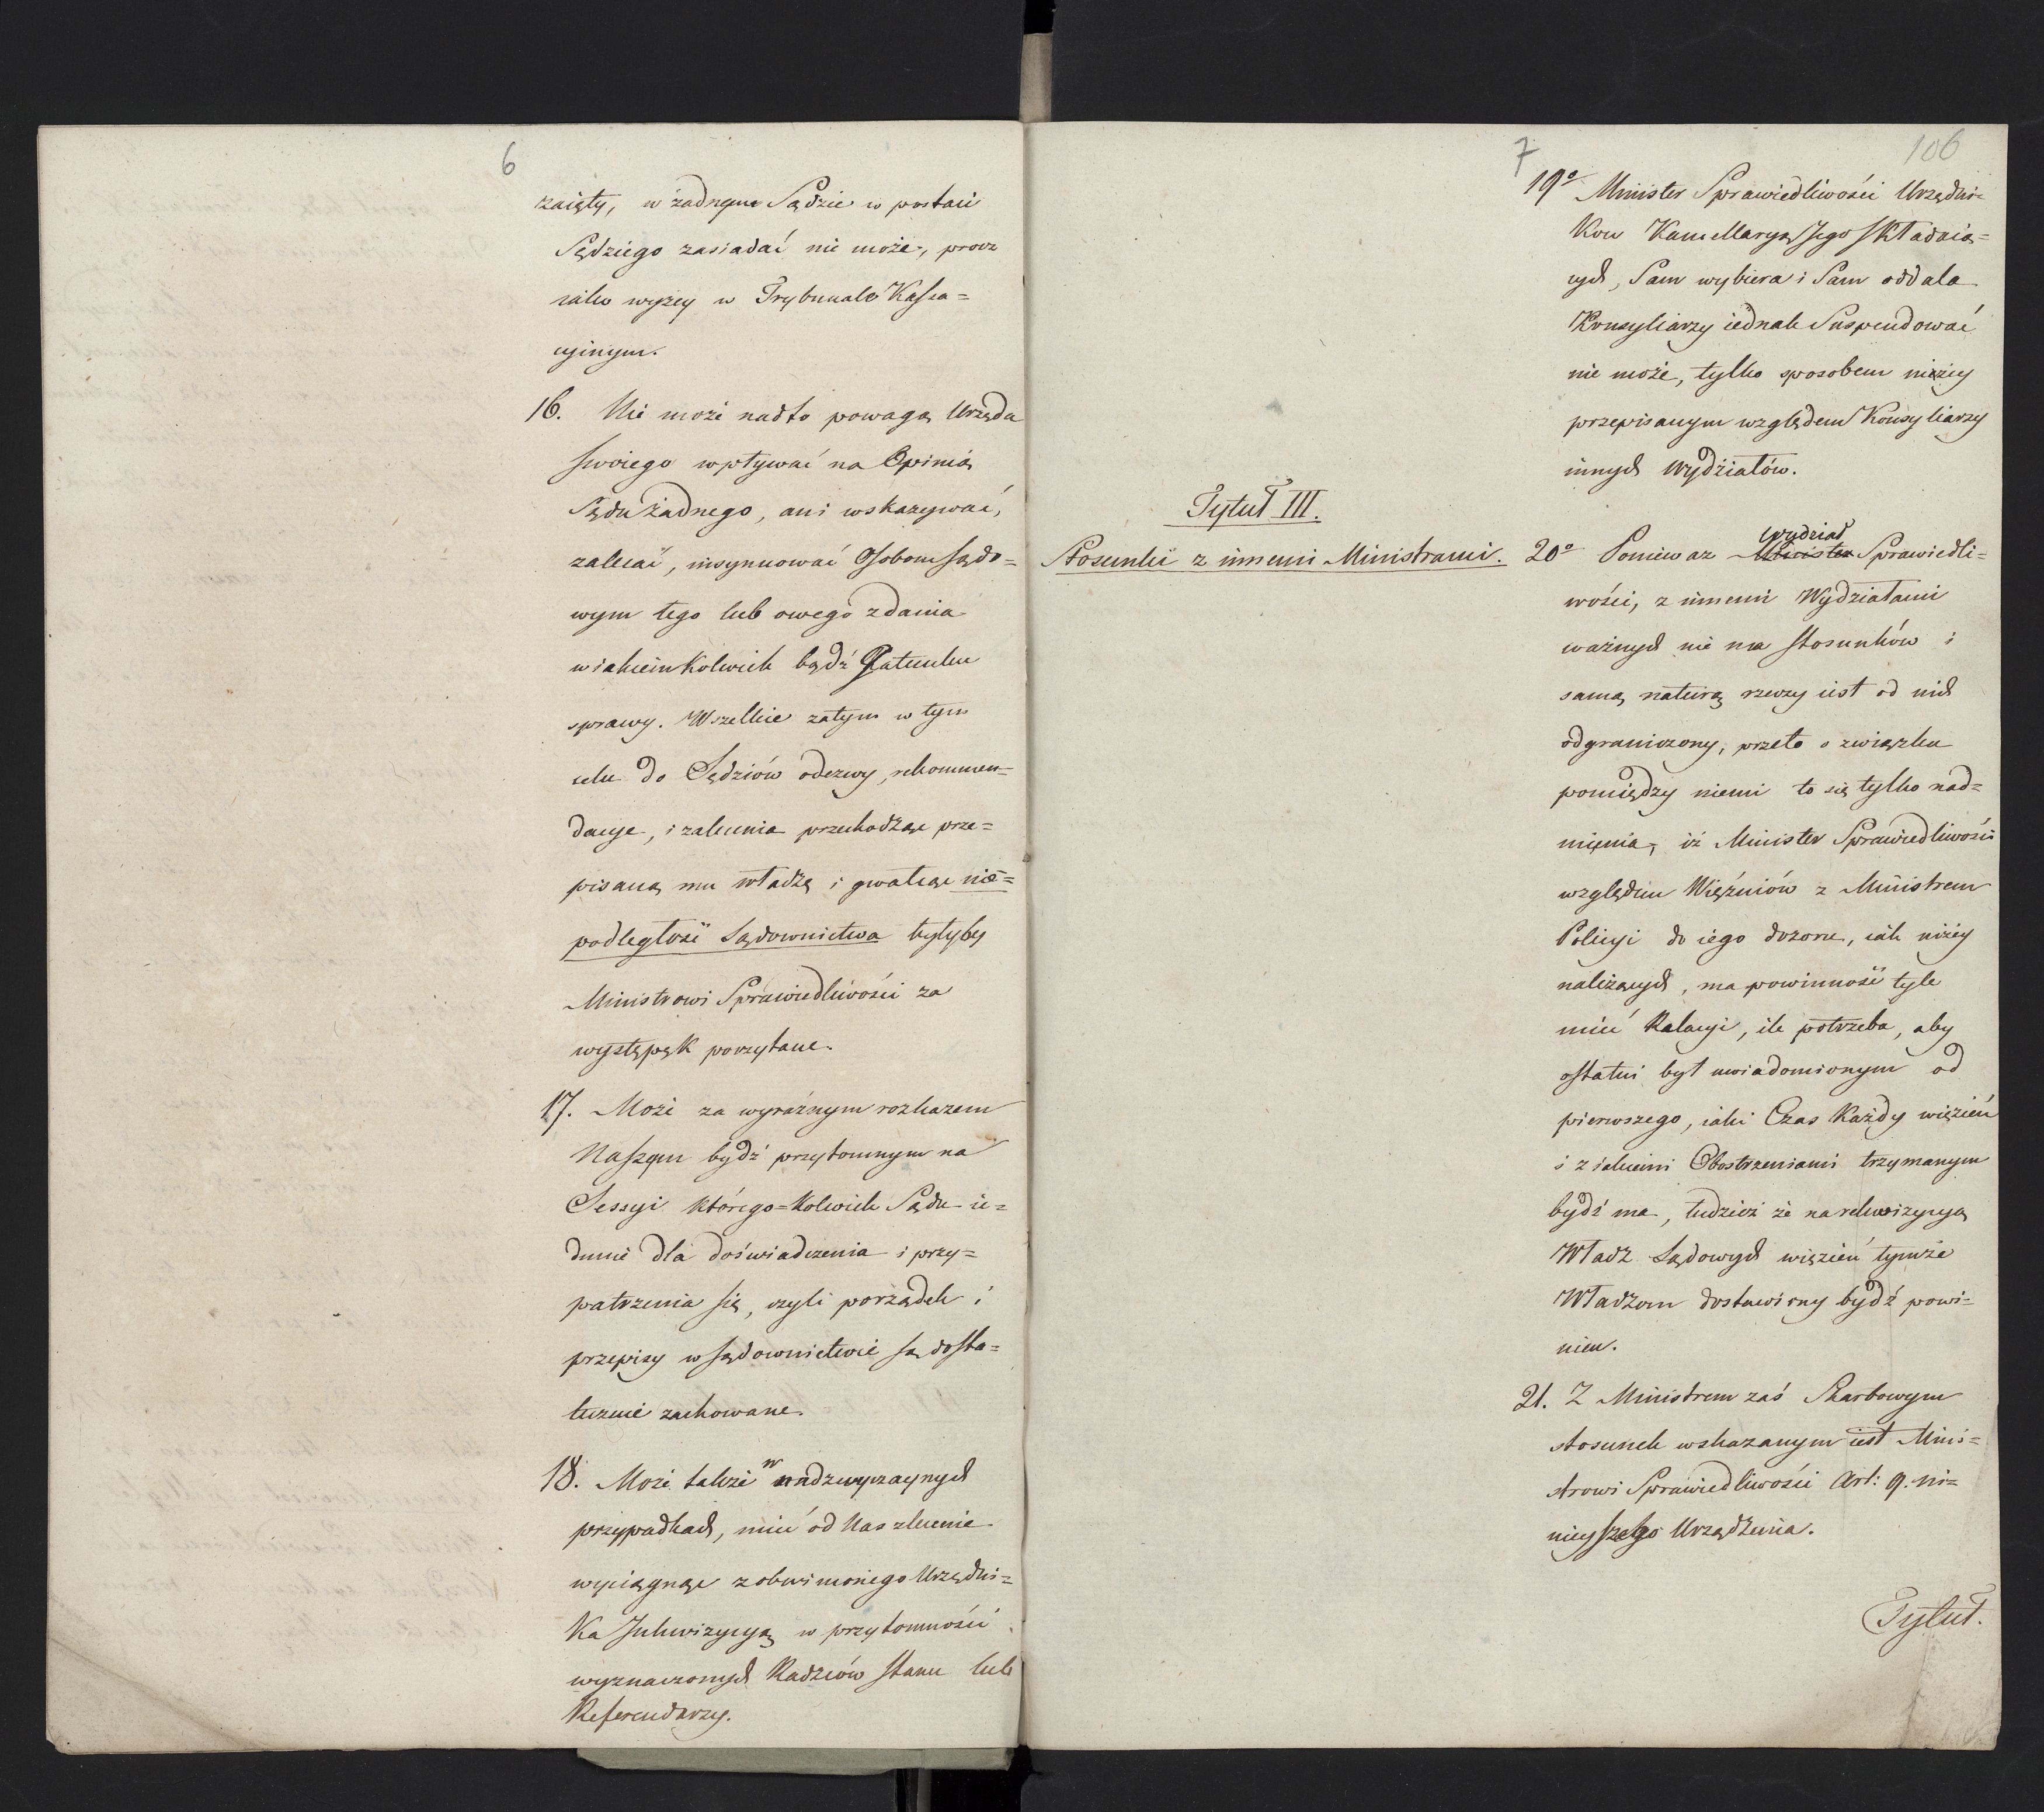 6
zaięty, w żadnym Sądzie w postaci
Sędziego zasiadać nie może, procz
iako wyżey w Trybunale Kassa=
cyinym.
16. Nie może nadto powagą Urzędu
swoiego wpływać na Opinią
Sądu żadnego, ani wskazywać,
zalecać, insynuować Osobom sądo=
wym tego lub owego zdania
w iakieimkolwiek bądź Gatunku
sprawy. Wszelkie zatym w tym
celu do Sędziów odezwy, rekommen=
dacye, i zalecenia przechodzące prze=
pisaną mu władzę i gwałcące nie=
podległość Sądownictwa byłyby
Ministrowi Sprawiedliwości za
występek poczytane.
17. Może za wyraźnym rozkazem
Naszym bydź przytomnym na
Sessyi którego=kolwiek Sądu ie=
dynie dla doświadczenia i przy=
patrzenia się, czyli porządek i
przepisy w sądownictwie są dosta=
tecznie zachowane.
18. Może także w nadzwyczaynych
przypadkach, mieć od Nas zlecenie
wyciągnąć z obwinionego Urzędni=
ka Inkwizycyą w przytomności
wyznaczonych Radzców stanu lub
Referendarzy.
7
106
19o Minister Sprawiedliwości Urzędni=
kow Kancellaryą Jego składaią=
cych, Sam wybiera i Sam oddala
Konsyliarzy iednak Suspendować
nie może, tylko sposobem niżey
przepisanym względem Konsyliarzy
innych Wydziałów.
Tytuł III.
Stosunki z innemi Ministrami.
20o Poniewaz Minister Wydział Sprawiedli=
wości, z innemi Wydziałami
ważnych nie ma stosunków i
samą naturą rzeczy iest od nich
odgraniczony, przeto o związku
pomiędzy niemi to się tylko nad=
mienia, iż Minister Sprawiedliwości
względem Więźniów z Ministrem
Policyi do iego dozoru, iak niżey
należących, ma powinność tyle
mieć Relacyi, ile potrzeba, aby
ostatni był uwiadomionym od
pierwszego, iaki Czas Każdy więzień
i z iakiemi Obostrzeniami trzymanym
bydź ma, tudzież że na rekwizycyą
Władz Sądowych więzień tymże
Władzom dostawiony bydź powi=
nien.
21. Z Ministrem zaś Skarbowym
stosunek wskazanym iest Mini=
strowi Sprawiedliwości Art: 9. ni=
nieyszego Urządzenia.
Tytuł.